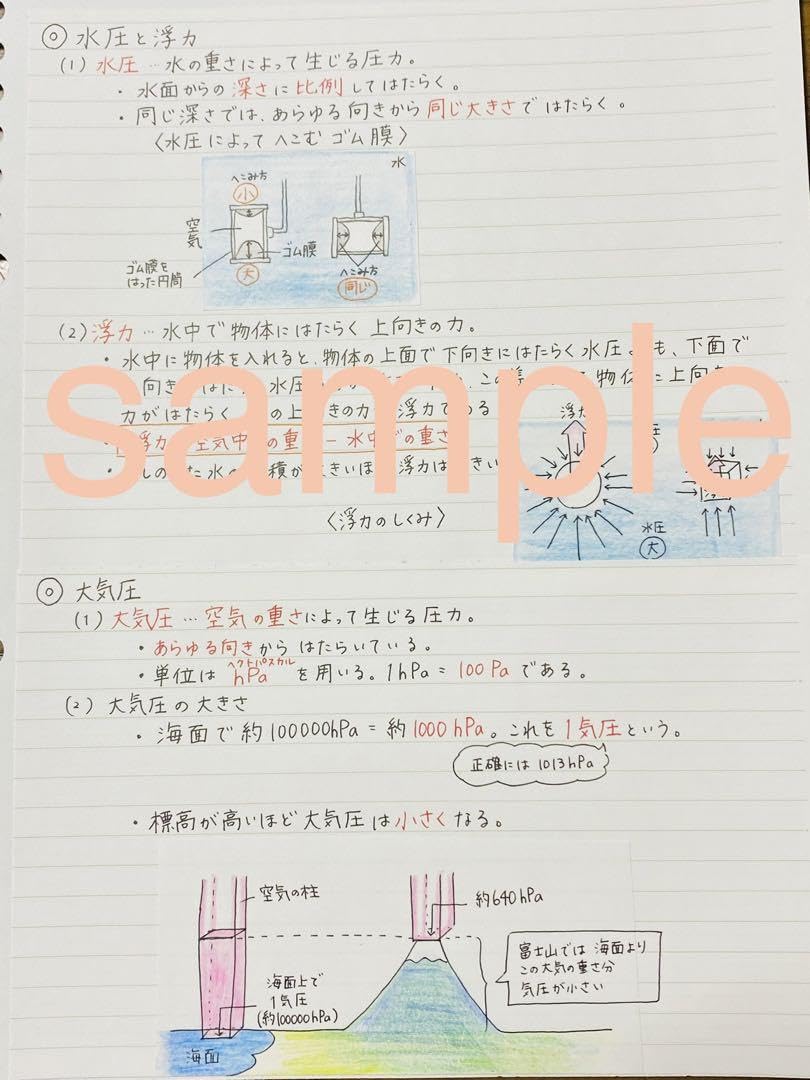 ◎ 水圧と浮力
(1) 水圧 … 水の重さによって生じる圧力。
・水面からの深さに比例してはたらく。
・同じ深さでは、あらゆる向きから同じ大きさではたらく。
〈水圧によってへこむゴム膜〉
水
へこみ方
小
空気
ゴム膜
ゴム膜をはった円筒
大
へこみ方
同じ
(2) 浮力 … 水中で物体にはたらく上向きの力。
・水中に物体を入れると、物体の上面で下向きにはたらく水圧よりも、下面で
向き はた 水圧 この 物体に上向き
力がはたらく の上向きの力 浮力である
浮力 空気中 の重 − 水中での重さ
し た水の 積が大きいほ 浮力は 大きい
sample
浮力
〈浮力のしくみ〉
水圧
大
◎ 大気圧
(1) 大気圧 … 空気の重さによって生じる圧力。
・あらゆる向きからはたらいている。
ヘクトパスカル
・単位は hPa を用いる。1hPa = 100 Pa である。
(2) 大気圧の大きさ
・海面で約100000hPa = 約1000 hPa。これを1気圧という。
正確には 1013hPa
・標高が高いほど大気圧は小さくなる。
空気の柱
約640hPa
富士山では海面より
この大気の重さ分
気圧が小さい
海面上で
1気圧
(約100000hPa)
海面